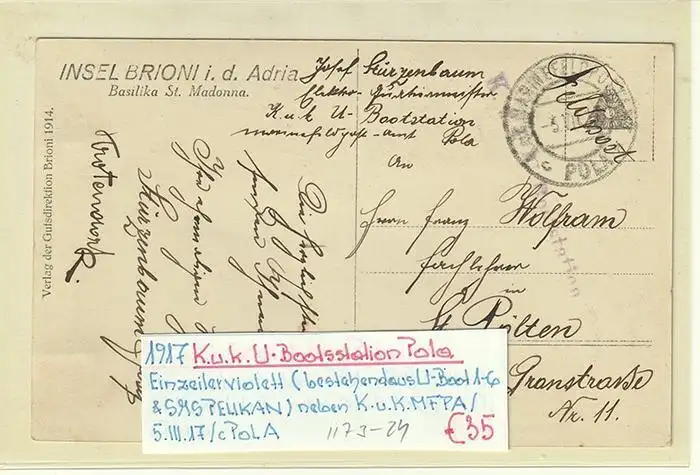 INSEL BRIONI i. d. Adria
Basilika St. Madonna.
Verlag der Gutsdirektion Brioni 1914.
Josef Kürzenbaum
Elektro-
K.u.k U-Bootstation
Pola
An
Feldpost
POLA
c
Herrn Franz Wolfram
Fachlehrer
in
St. Pölten
Granstraße
Nr. 11.
Die herzlichsten
Ihr
Kürzenbaum
tation
1917 K.u.k. U-Bootsstation Pola
Einzeiler violett (bestehend aus U-Boot 1-6
& SMS PELIKAN) neben K.u.K. MFPA/
5.III.17/c POLA 1173-24 €35